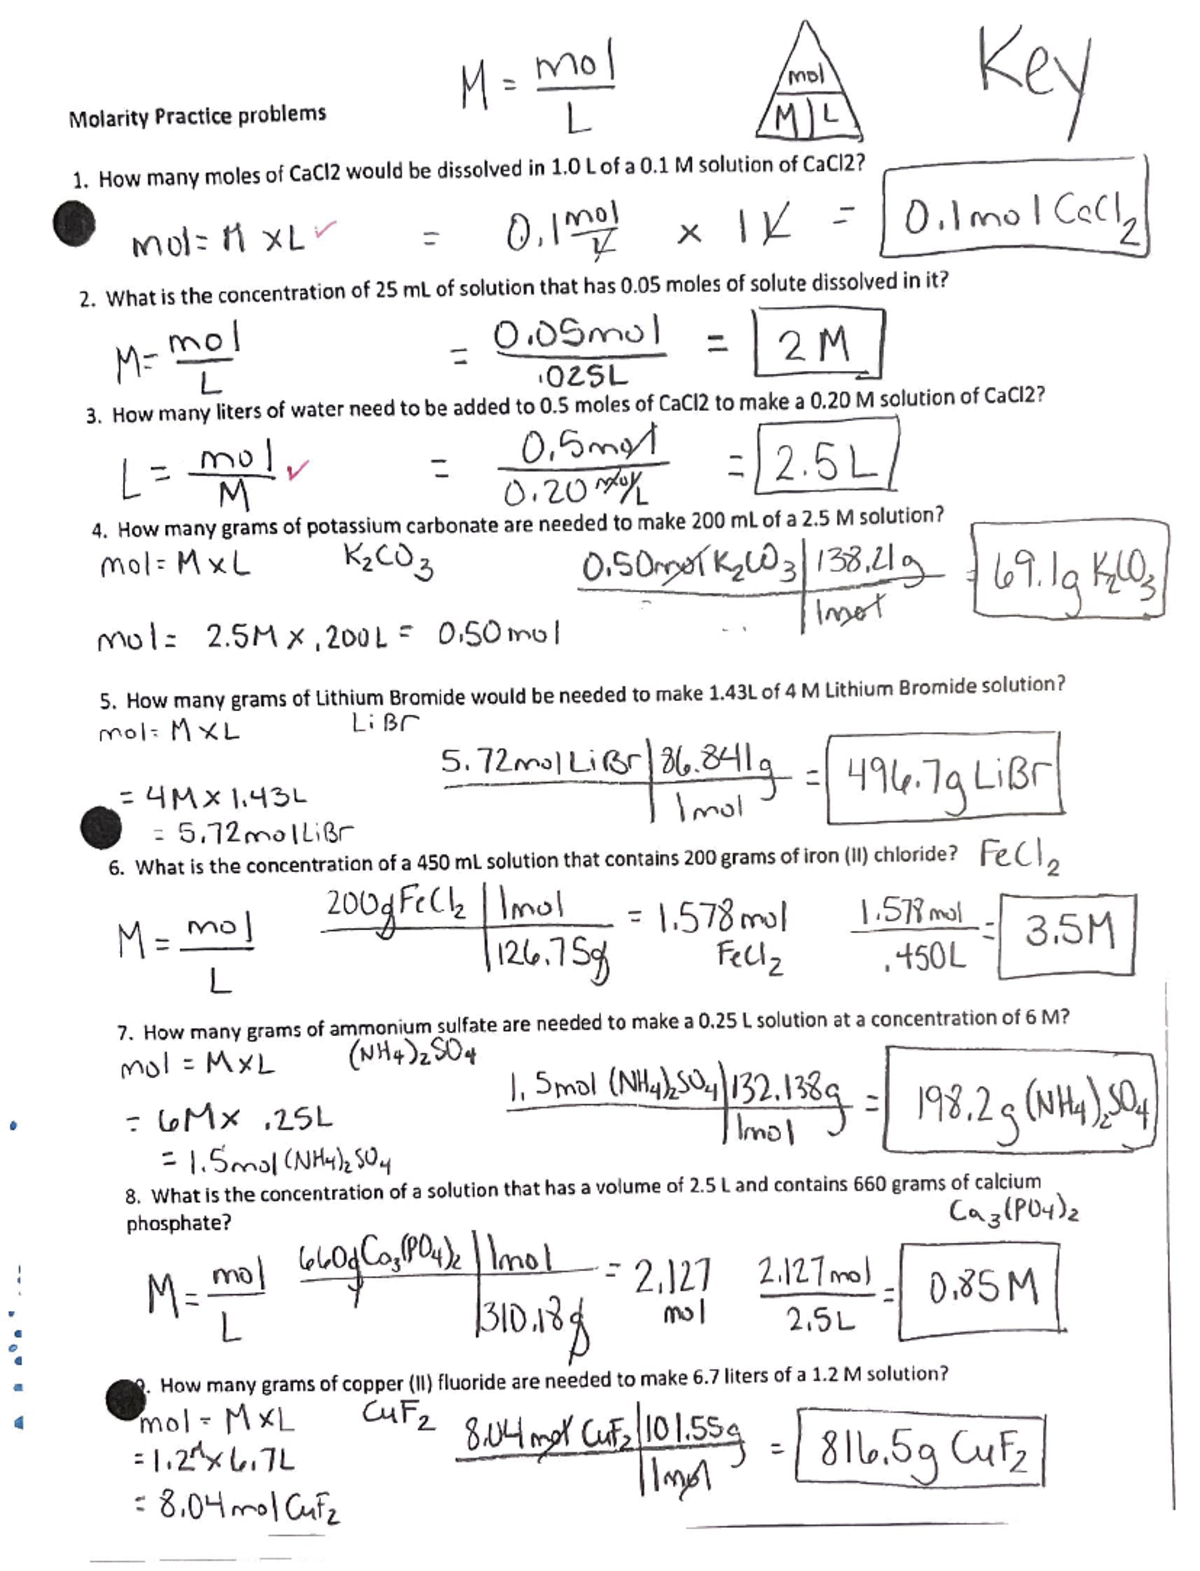 M = mol / L
mol
M | L
Key
Molarity Practice problems
1. How many moles of CaCl2 would be dissolved in 1.0 L of a 0.1 M solution of CaCl2?
mol = M x L ✓ = 0.1 mol/L x 1 L = 0.1 mol CaCl₂
2. What is the concentration of 25 mL of solution that has 0.05 moles of solute dissolved in it?
M = mol / L = 0.05 mol / .025L = 2 M
3. How many liters of water need to be added to 0.5 moles of CaCl2 to make a 0.20 M solution of CaCl2?
L = mol / M ✓ = 0.5 mol / 0.20 mol/L = 2.5 L
4. How many grams of potassium carbonate are needed to make 200 mL of a 2.5 M solution?
mol = M x L K₂CO₃ 0.50 mol K₂CO₃ | 138.21 g / 1 mol = 69.1g K₂CO₃
mol = 2.5M x .200L = 0.50 mol
5. How many grams of Lithium Bromide would be needed to make 1.43L of 4 M Lithium Bromide solution?
mol = M x L LiBr
5.72 mol LiBr | 86.841g / 1 mol = 496.7g LiBr
= 4M x 1.43L
= 5.72 mol LiBr
6. What is the concentration of a 450 mL solution that contains 200 grams of iron (II) chloride? FeCl₂
M = mol / L 200g FeCl₂ | 1 mol / 126.75g = 1.578 mol FeCl₂ 1.578 mol / .450L = 3.5M
7. How many grams of ammonium sulfate are needed to make a 0.25 L solution at a concentration of 6 M?
mol = M x L (NH₄)₂SO₄
1.5 mol (NH₄)₂SO₄ | 132.138g / 1 mol = 198.2 g (NH₄)₂SO₄
= 6M x .25L
= 1.5 mol (NH₄)₂SO₄
8. What is the concentration of a solution that has a volume of 2.5 L and contains 660 grams of calcium
phosphate?
Ca₃(PO₄)₂
M = mol / L 660g Ca₃(PO₄)₂ | 1 mol / 310.18g = 2.127 mol 2.127 mol / 2.5L = 0.85 M
9. How many grams of copper (II) fluoride are needed to make 6.7 liters of a 1.2 M solution?
mol = M x L CuF₂ 8.04 mol CuF₂ | 101.55g / 1 mol = 816.5g CuF₂
= 1.2M x 6.7L
= 8.04 mol CuF₂